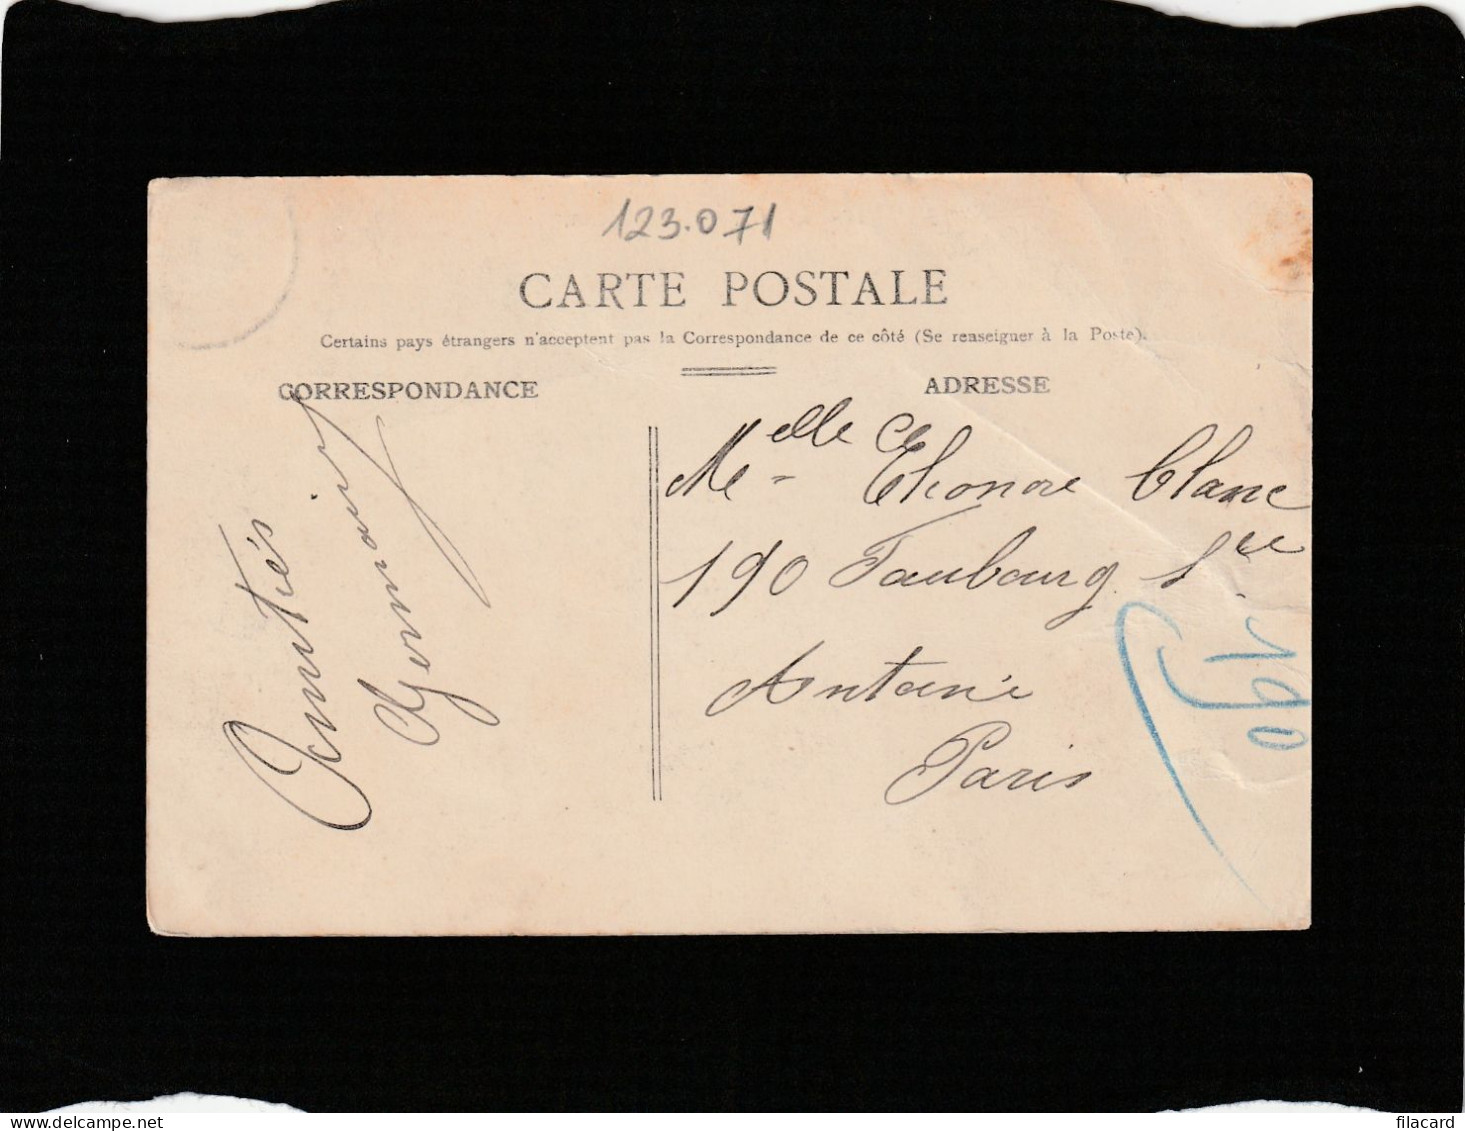 123.071
CARTE POSTALE
Certains pays étrangers n'acceptent pas la Correspondance de ce côté (Se renseigner à la Poste).
CORRESPONDANCE
ADRESSE
Amitiés
Melle Eléonore Blanc
190 Faubourg Ste
Antoine
Paris
190
filacard